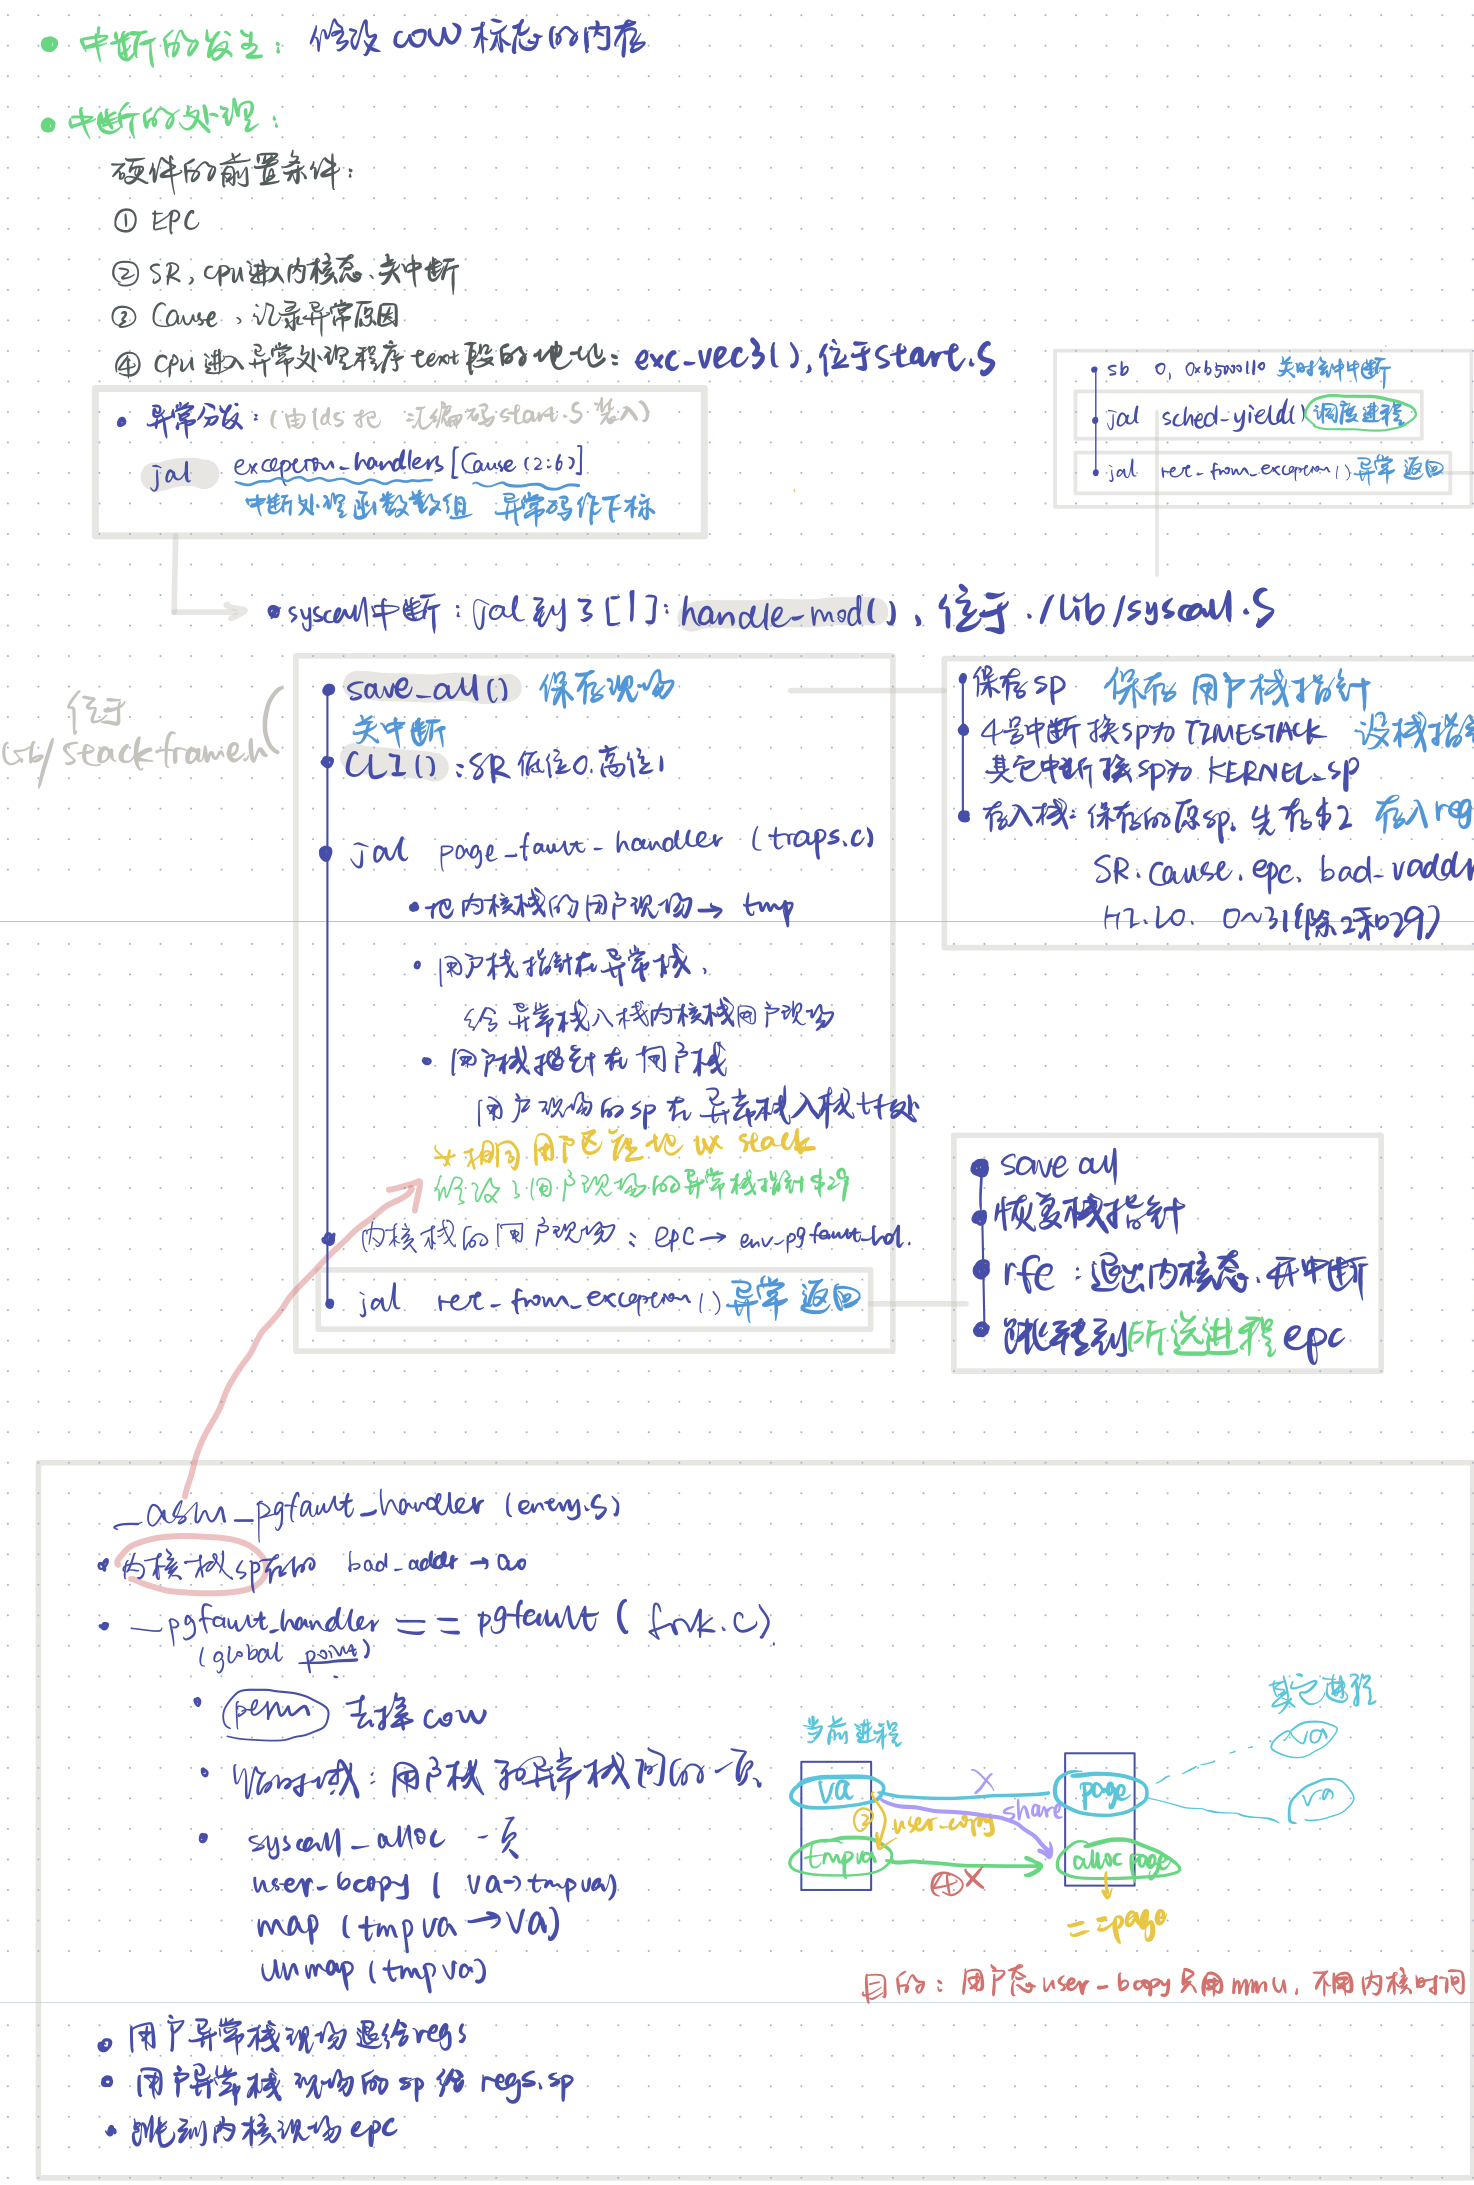 中断的发生： 修改 COW 标志的内存
中断的处理：
硬件的前置条件：
① EPC
② SR, cpu进入内核态、关中断
③ Cause、记录异常原因
④ cpu 进入异常处理程序 text 段的地址： exc_vec3(), 位于start.S
异常分发：(由lds 把 汇编码 start.S 装入)
jal exception_handlers [Cause (2:6)]
中断处理函数数组 异常码作下标
sb 0, 0xb5000110 关时钟中断
jal sched_yield() 调度进程
jal ret_from_exception() 异常 返回
syscall中断：jal 到了[1]: handle_mod()、位于 ./lib/syscall.S
位于
lib/ stackframe.h
save_all() 保存现场
关中断
CLI() : SR 低位0.高位1
jal page_fault_handler (traps.c)
把内核栈的用户现场→ tmp
用户栈指针在异常栈、
给异常栈入栈内核栈用户现场
用户栈指针在用户栈
用户现场的sp在异常栈入栈
相同 用户 stack
修改了用户现场的异常栈指针$29
内核栈的用户现场：epc→ env_pgfault_hdl.
jal ret_from_exception() 异常 返回
保存sp 保存 用户栈指针
4号中断换sp为 TIMESTACK 设栈指针
其它中断换sp为 KERNEL_SP
存入栈：保存的原sp. 先存$2 存入reg
SR. cause. epc. bad_vaddr
HI. LO. 0~31(除2和29)
save all
恢复栈指针
rfe：退出内核态、开中断
跳转到所选进程 epc
__asm_pgfault_handler (entry.S)
内核栈sp存的 bad_addr → a0
__pgfault_handler == pgfault ( fork.c)
(global point)
perm 去掉 cow
临时域：用户栈和异常栈间的一页、
syscall_alloc 一页
user_bcopy ( va→tmpva)
map (tmpva →va)
unmap (tmpva)
当前进程
其它进程
va
page
va
va
share
② user_copy
tmpva
alloc page
④ ×
==page
目的：用户态user_bcopy只用mmu, 不用内核时间
用户异常栈现场退给regs
用户异常栈现场的 sp 给 regs.sp
跳到内核现场epc